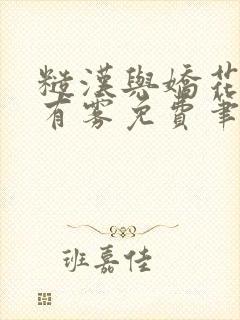 糙漢與嬌花
有霧免費筆
班嘉佳